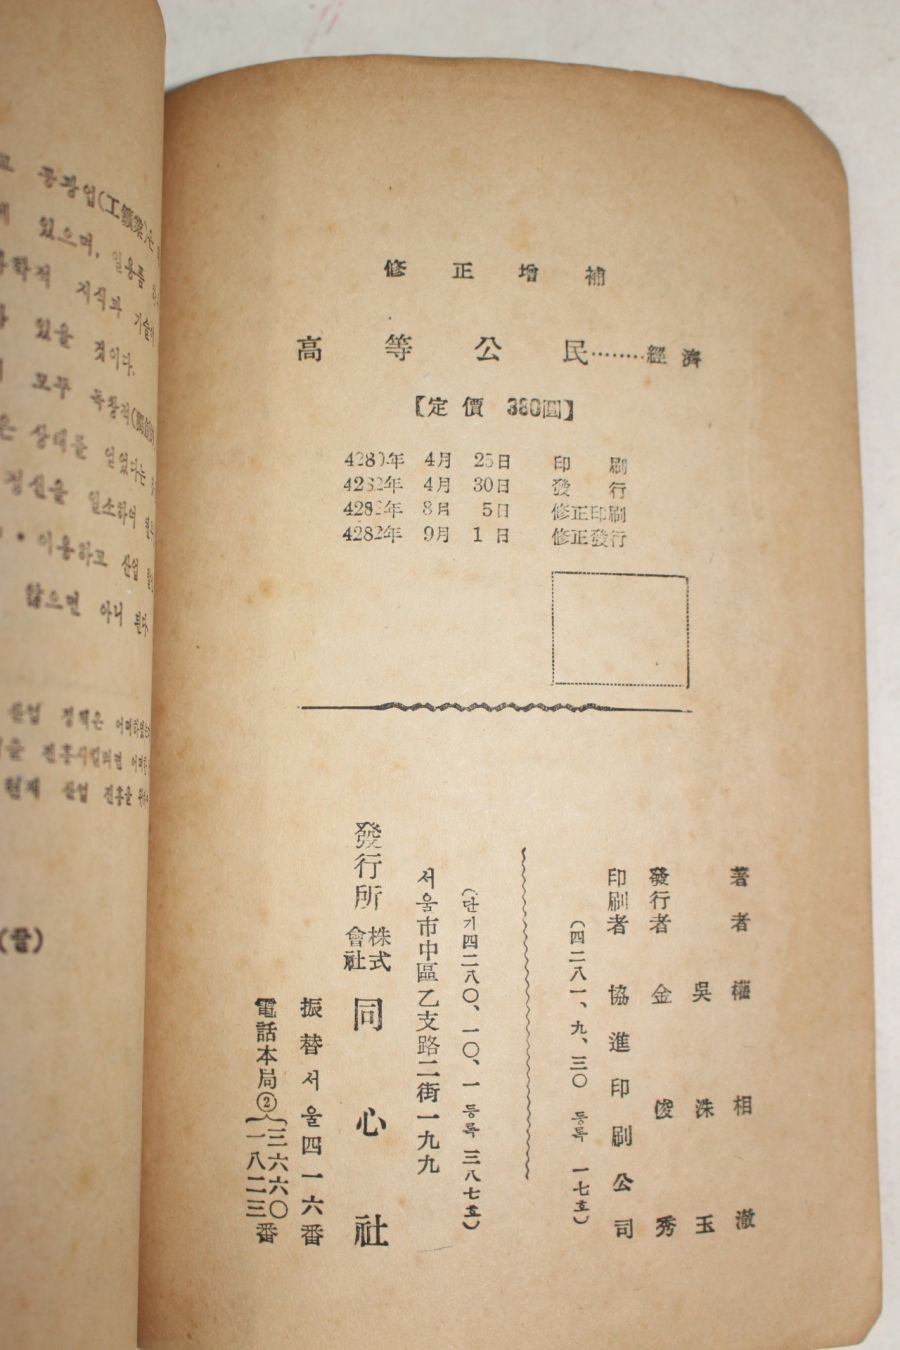 고 공광업(工鑛業)은
있으며, 일용품
지식과 기술이
있을 것이다.
모두 독창적
은 상태를 얻었다는
정신을 일소하여
•이용하고 산업
않으면 아니 된다.
산업 정책은
진흥시킬려면
현재 산업 진흥을
(끝)
修正增補
高等公民………經濟
【定價 380圓】
年 4月 25日 印刷
年 4月 30日 發行
年 8月 5日 修正印刷
4282年 9月 1日 修正發行
著者 權相澈
吳洙玉
發行者 金俊秀
印刷者 協進印刷公司
(四二八一、九、三〇 등록 一七호)
(단기四二八〇、一〇、一 등록 三八七호)
서울市中區乙支路二街一九九
發行所 株式會社 同心社
振替서울四一六番
電話本局②{三六六〇 一八二三番